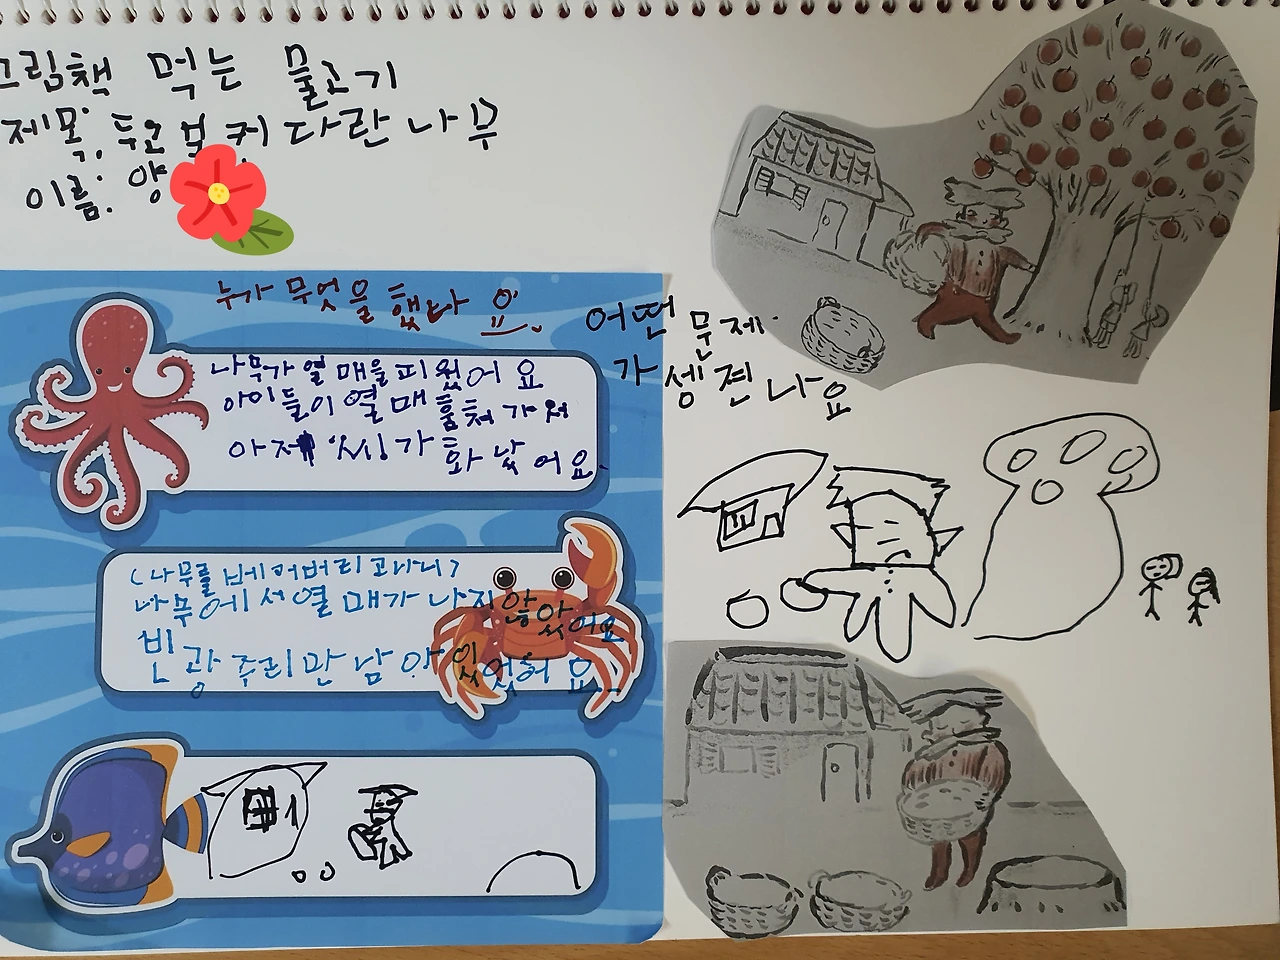 그림책 먹는 물고기
제목: 두고보 커다란 나무
이름: 양
누가 무엇을 했나요
어떤 문제
가 생견나요
나무가 열매을 피웠어요
아이들이 열매 훔쳐 가서
아저씨가 화났어요.
(나무를 베어버리고나니)
나무에서 열매가 나지 않았어요
빈 광주리만 남아 있었어요..